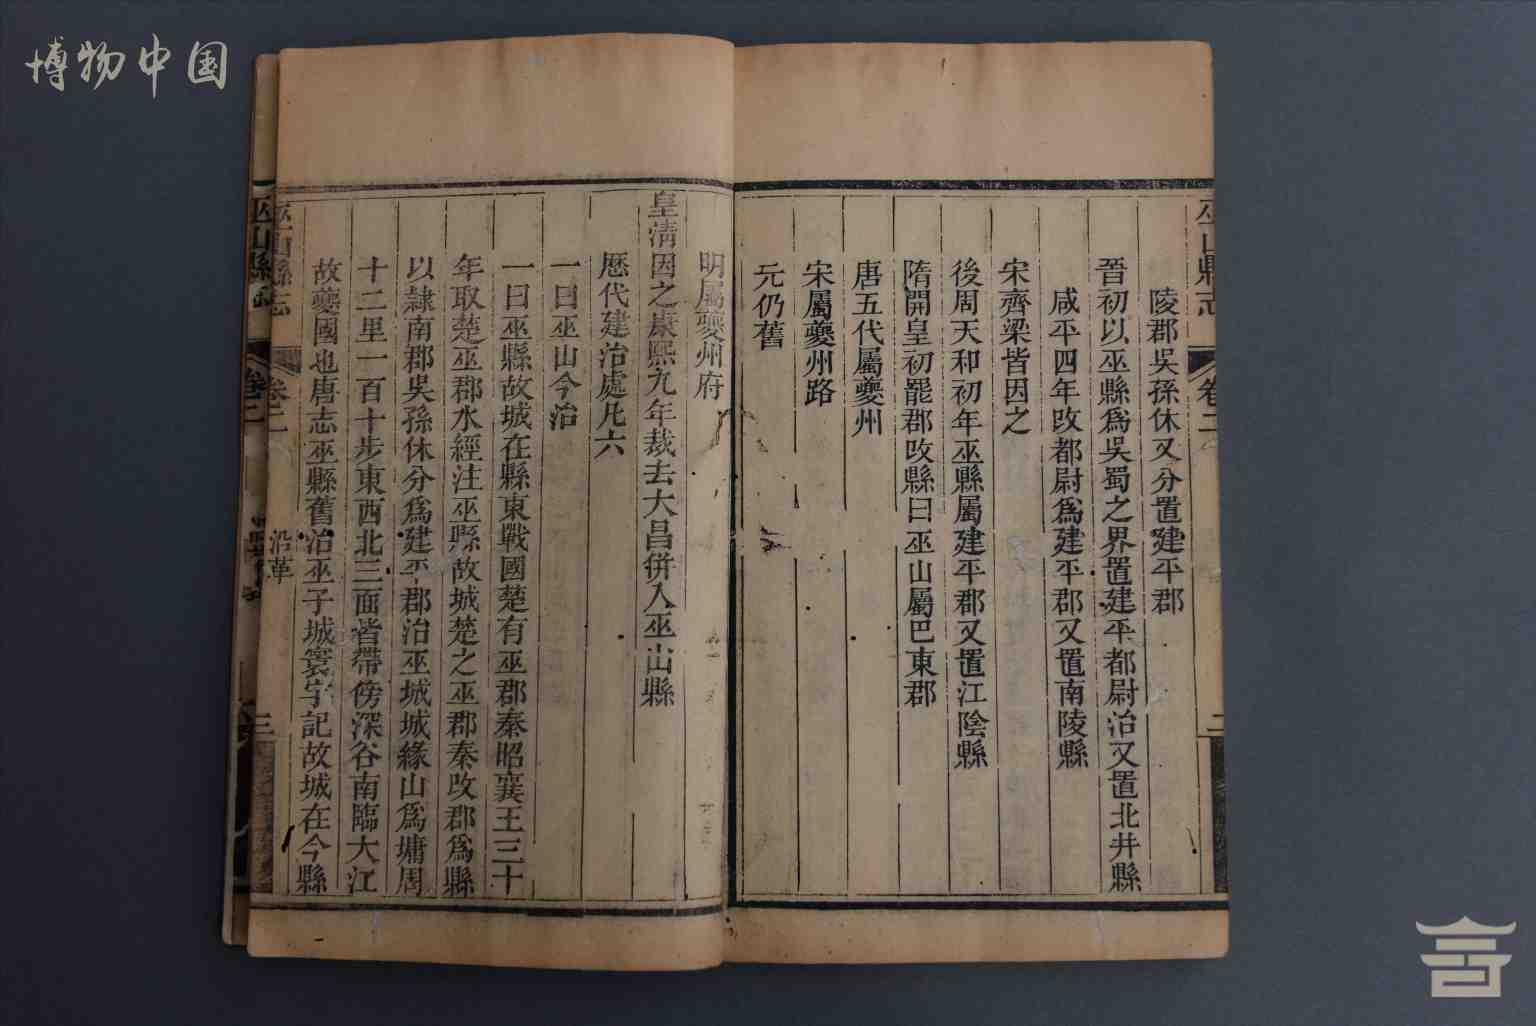 博物中国
巫山縣志
卷二
二
陵郡吳孫休又分置建平郡
晉初以巫縣爲吳蜀之界置建平都尉治又置北井縣
咸平四年改都尉爲建平郡又置南陵縣
宋齊梁皆因之
後周天和初年巫縣屬建平郡又置江陰縣
隋開皇初罷郡改縣曰巫山屬巴東郡
唐五代屬夔州
宋屬夔州路
元仍舊
明屬夔州府
皇清因之康熙九年裁去大昌併入巫山縣
歷代建治處凡六
一曰巫山今治
一曰巫縣故城在縣東戰國楚有巫郡秦昭襄王三十
年取楚巫郡水經注巫縣故城楚之巫郡秦改郡爲縣
以隷南郡吳孫休分爲建平郡治巫城城緣山爲墉周
十二里一百十步東西北三面皆帶傍深谷南臨大江
故夔國也唐志巫縣舊治巫子城寰宇記故城在今縣
巫山縣志
卷二
沿革
三
巫山縣志
卷二